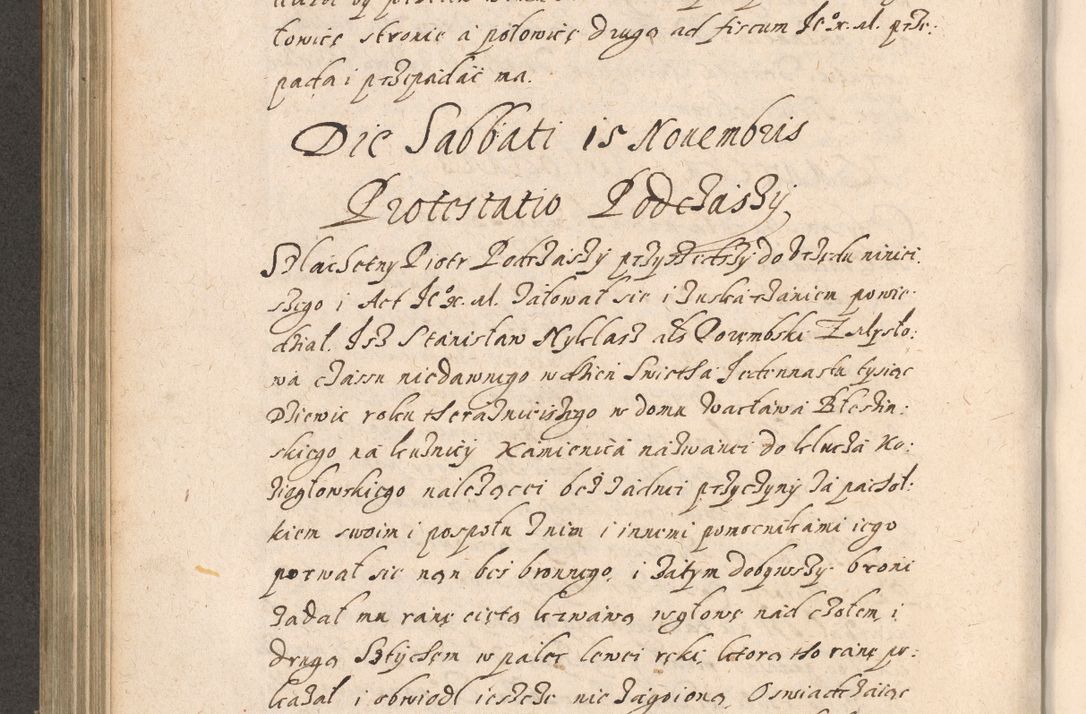 towicę stronie a połowicę drugą ad fiscum Jeo x. M. prze:
pada i przepadać ma.
Die Sabbati 15 Novembris
Protestatio Podczaszy
Szlachetny Piotr Podczaszy przyszedszy do Urzędu niniei
szego i Act Jeo x. M. żałował sie i z uskarżaniem powie:
dział. Jsz Stanisław Myklasz als Porembski z Mysło:
wa czassu niedawnego w dzien Swietha Jedennastu tysiąc
Dziewic roku theraznieiszego w domu Wacława Bleszin:
skiego na kuznicy Kamienica nazwanei do klucza Ko:
ziegłowskiego należącei bez żadnei przyczyny za pachoł:
kiem swoim i pospołu z nim i innemi pomocnikami iego
porwał sie nan bes bronnego, i zatym dobywszy broni
zadał mu ranę ciętą krwawą w głowę nad czołem, i
drugą Sztychem w palec lewei ręki, ktorą tho ranę po:
kazał i obwiodl ieszcze nie zagoioną, Oswiadczaiąc